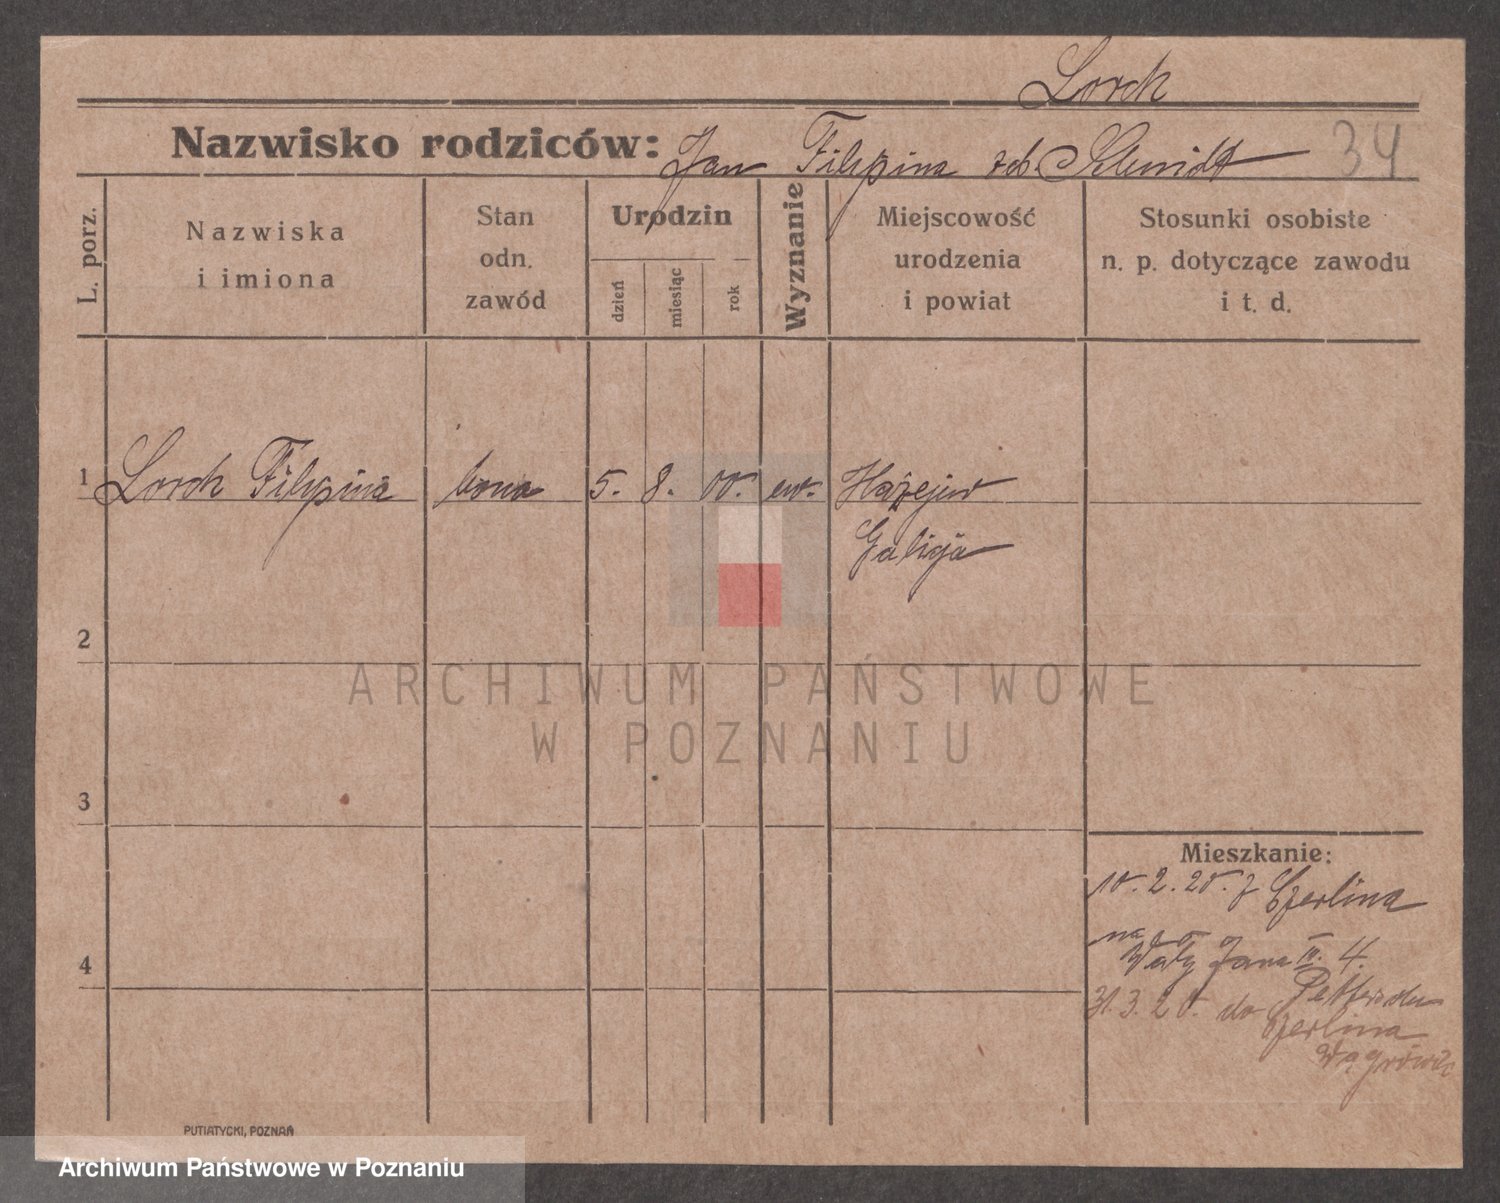 Lorch
Nazwisko rodziców: Jan Filipina zd. Schmidt 34
L. porz.
Nazwiska
i imiona
Stan
odn.
zawód
Urodzin
dzień
miesiąc
rok
Wyznanie
Miejscowość
urodzenia
i powiat
Stosunki osobiste
n. p. dotyczące zawodu
i t. d.
1 Lorch Filipina bona 5. 8. 00. ew. Hażejew
Galicja
2
ARCHIWUM PAŃSTWOWE
W POZNANIU
3
Mieszkanie:
10. 2. 20. z Czerlina
na
Wały Jana III. 4.
31. 3. 20. do Czerlina
4
PUTIATYCKI, POZNAŃ
Archiwum Państwowe w Poznaniu